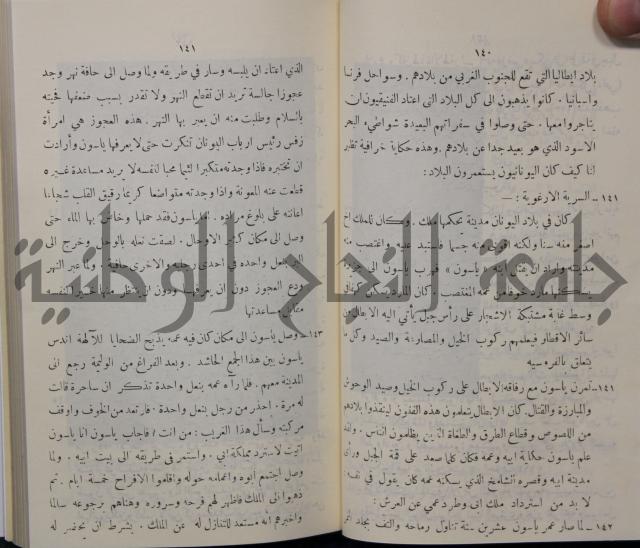 ١٤٠
بلاد ايطاليا التي تقع للجنوب الغربي من بلادهم . وسواحل فرنسا
واسبانيا . كانوا يذهبون الى كل البلاد التي اعتاد الفنيقيون ان
يتاجروا معها . حتى وصلوا في سفراتهم البعيدة شواطىء البحر
الاسود الذي هو بعيد جدا عن بلادهم . وهذه حكاية خرافية تظهر
لنا كيف كان اليونانيون يستعمرون البلاد :
١٤١ ــ السرية الارغوية : ــ
كان في بلاد اليونان مدينة يحكمها ملك . وكان للملك اخ
اصغر منه سنا ولكنه اقوى منه جسما فاستبد عليه واغتصب منه
مدينته واراد ان يقتل ابنه « ياسون » فهرب ياسون الى
من عمه المغتصب . كان المارد يسكن
وسط غابة مشتبكة الاشجار على رأس جبل يأتي اليه الابطال من
سائر الاقطار فيعلمهم ركوب الخيل والمصارعة والصيد وكل ما
يتعلق بالفروسية
١٤١ تمرن ياسون مع رفاقه الابطال على ركوب الخيل وصيد الوحوش
والمبارزة والقتال . كان الابطال يتعلمون هذه الفنون لينقذوا بلادهم
من اللصوص وقطاع الطرق والطغاة الذين يظلمون الناس .
علم ياسون حكاية ابيه وعمه فكان كلما صعد على قمة الجبل ورأى
مدينة ابيه وقصره الشامخ الذي يسكنه عمه كان يقول في نفسه :
لا بد من استرداد ملك ابي وطرد عمي عن العرش :
١٤٢ ــ لما صار عمر ياسون عشرين سنة تناول رماحه والتف بجلد
١٤١
الذي اعتاد ان يلبسه وسار في طريقه ولما وصل الى حافة نهر وجد
عجوزا جالسة تريد ان تقطع النهر ولا تقدر بسبب ضعفها فحيته
بالسلام وطلبت منه ان يعبر بها النهر . هذه العجوز هي امرأة
زفس رئيس ارباب اليونان تنكرت حتى لا يعرفها ياسون وأرادت
ان تختبره فاذا وجدته متكبرا لئيما محبا لنفسه لا يريد مساعدة غيره
قطعت عنه المعونة واذا وجدته متواضعا كريما رقيق القلب شجاعا
اعانته على بلوغ مراده . اما ياسون فقد حملها وخاض بها الماء حتى
وصل الى مكان كثير الاوحال . لصقت نعله بالوحل وخرج الى
البر بنعل واحدة في احدى رجليه والاخرى حافية . ولما عبر النهر
ودع العجوز دون ان يعرفها ودون ان ينتظر منها خيرا لنفسه
مقابل مساعدتها
١٤٣ ــ وصل ياسون الى مكان كان فيه عمه يذبح الضحايا للآلهة اندس
ياسون بين هذا الجمع الحاشد . وبعد الفراغ من الوليمة رجع الى
المدينة معهم . فلما رآه عمه بنعل واحدة تذكر ان ساحرة قالت
له مرة . احذر من رجل بنعل واحدة . فارتعد من الخوف واوقف
مركبته وسأل هذا الغريب : من انت ؟ فاجاب ياسون انا ياسون
اتيت لاسترد مملكة ابي . واستمر في طريقه الى بيت ابيه . ولما
وصل اجتمع ابوه واعمامه حوله واقاموا الافراح خمسة ايام . ثم
ذهبوا الى الملك فاظهر لهم فرحه وسروره وهناهم برجوعه سالما
واخبرهم انه مستعد للتنازل له عن الملك . بشرط ان يحضر له
جامعة النجاح الوطنية